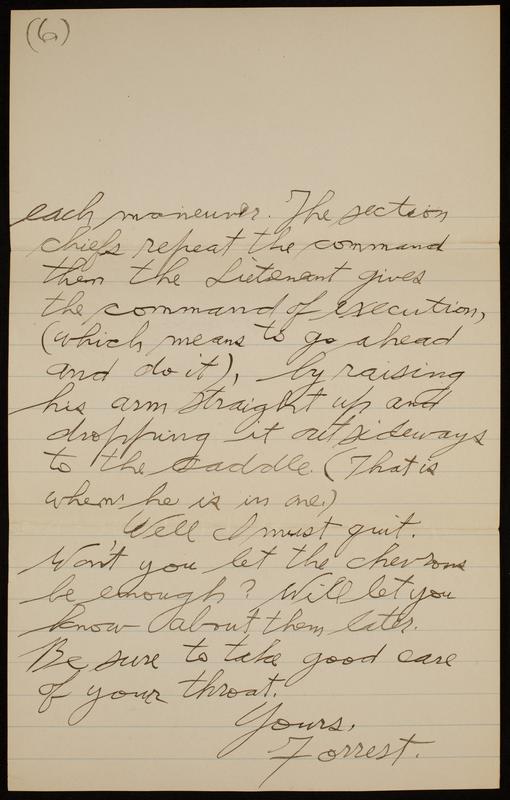 (6)
each maneuver. The section
chiefs repeat the command
then the Lietenant gives
the command of execution,
(which means to go ahead
and do it), by raising
his arm straight up and
dropping it out sideways
to the saddle. (That is
when he is in one.)
Well I must quit.
Won't you let the chevrons
be enough? Will let you
know about them later.
Be sure to take good care
of your throat.
Yours,
Forrest.